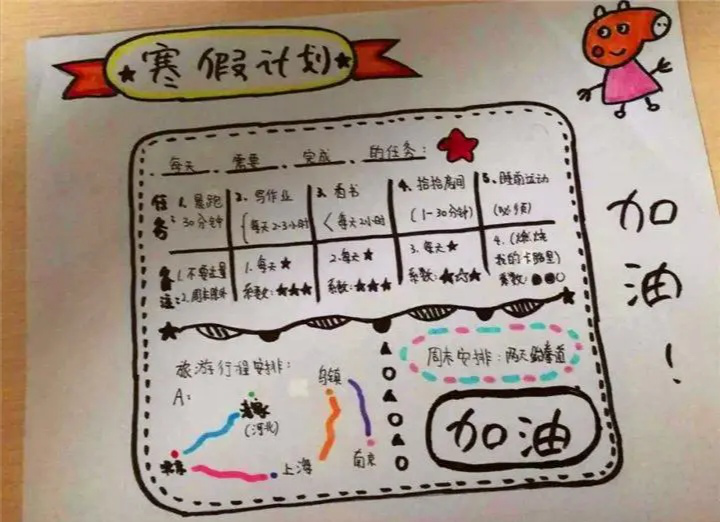 寒假计划
每天 需要 完成 的任务：
任务：
1. 晨跑 30分钟
2. 写作业 (每天2-3小时
3. 看书 <每天2小时
4. 拾拾房间 (1-30分钟)
5. 睡前运动 (必须)
备注：
1. 不要过量 2. 周末除外
1. 每天★ 系数：★★★
2. 每天★ 系数：★★★
3. 每天★ 系数：★☆★
4. (燃烧我的卡路里) 系数：●●○
旅游行程安排：
A：
(河北)
乌镇
上海
南京
北京
周末安排：两天跆拳道
加油
加油！